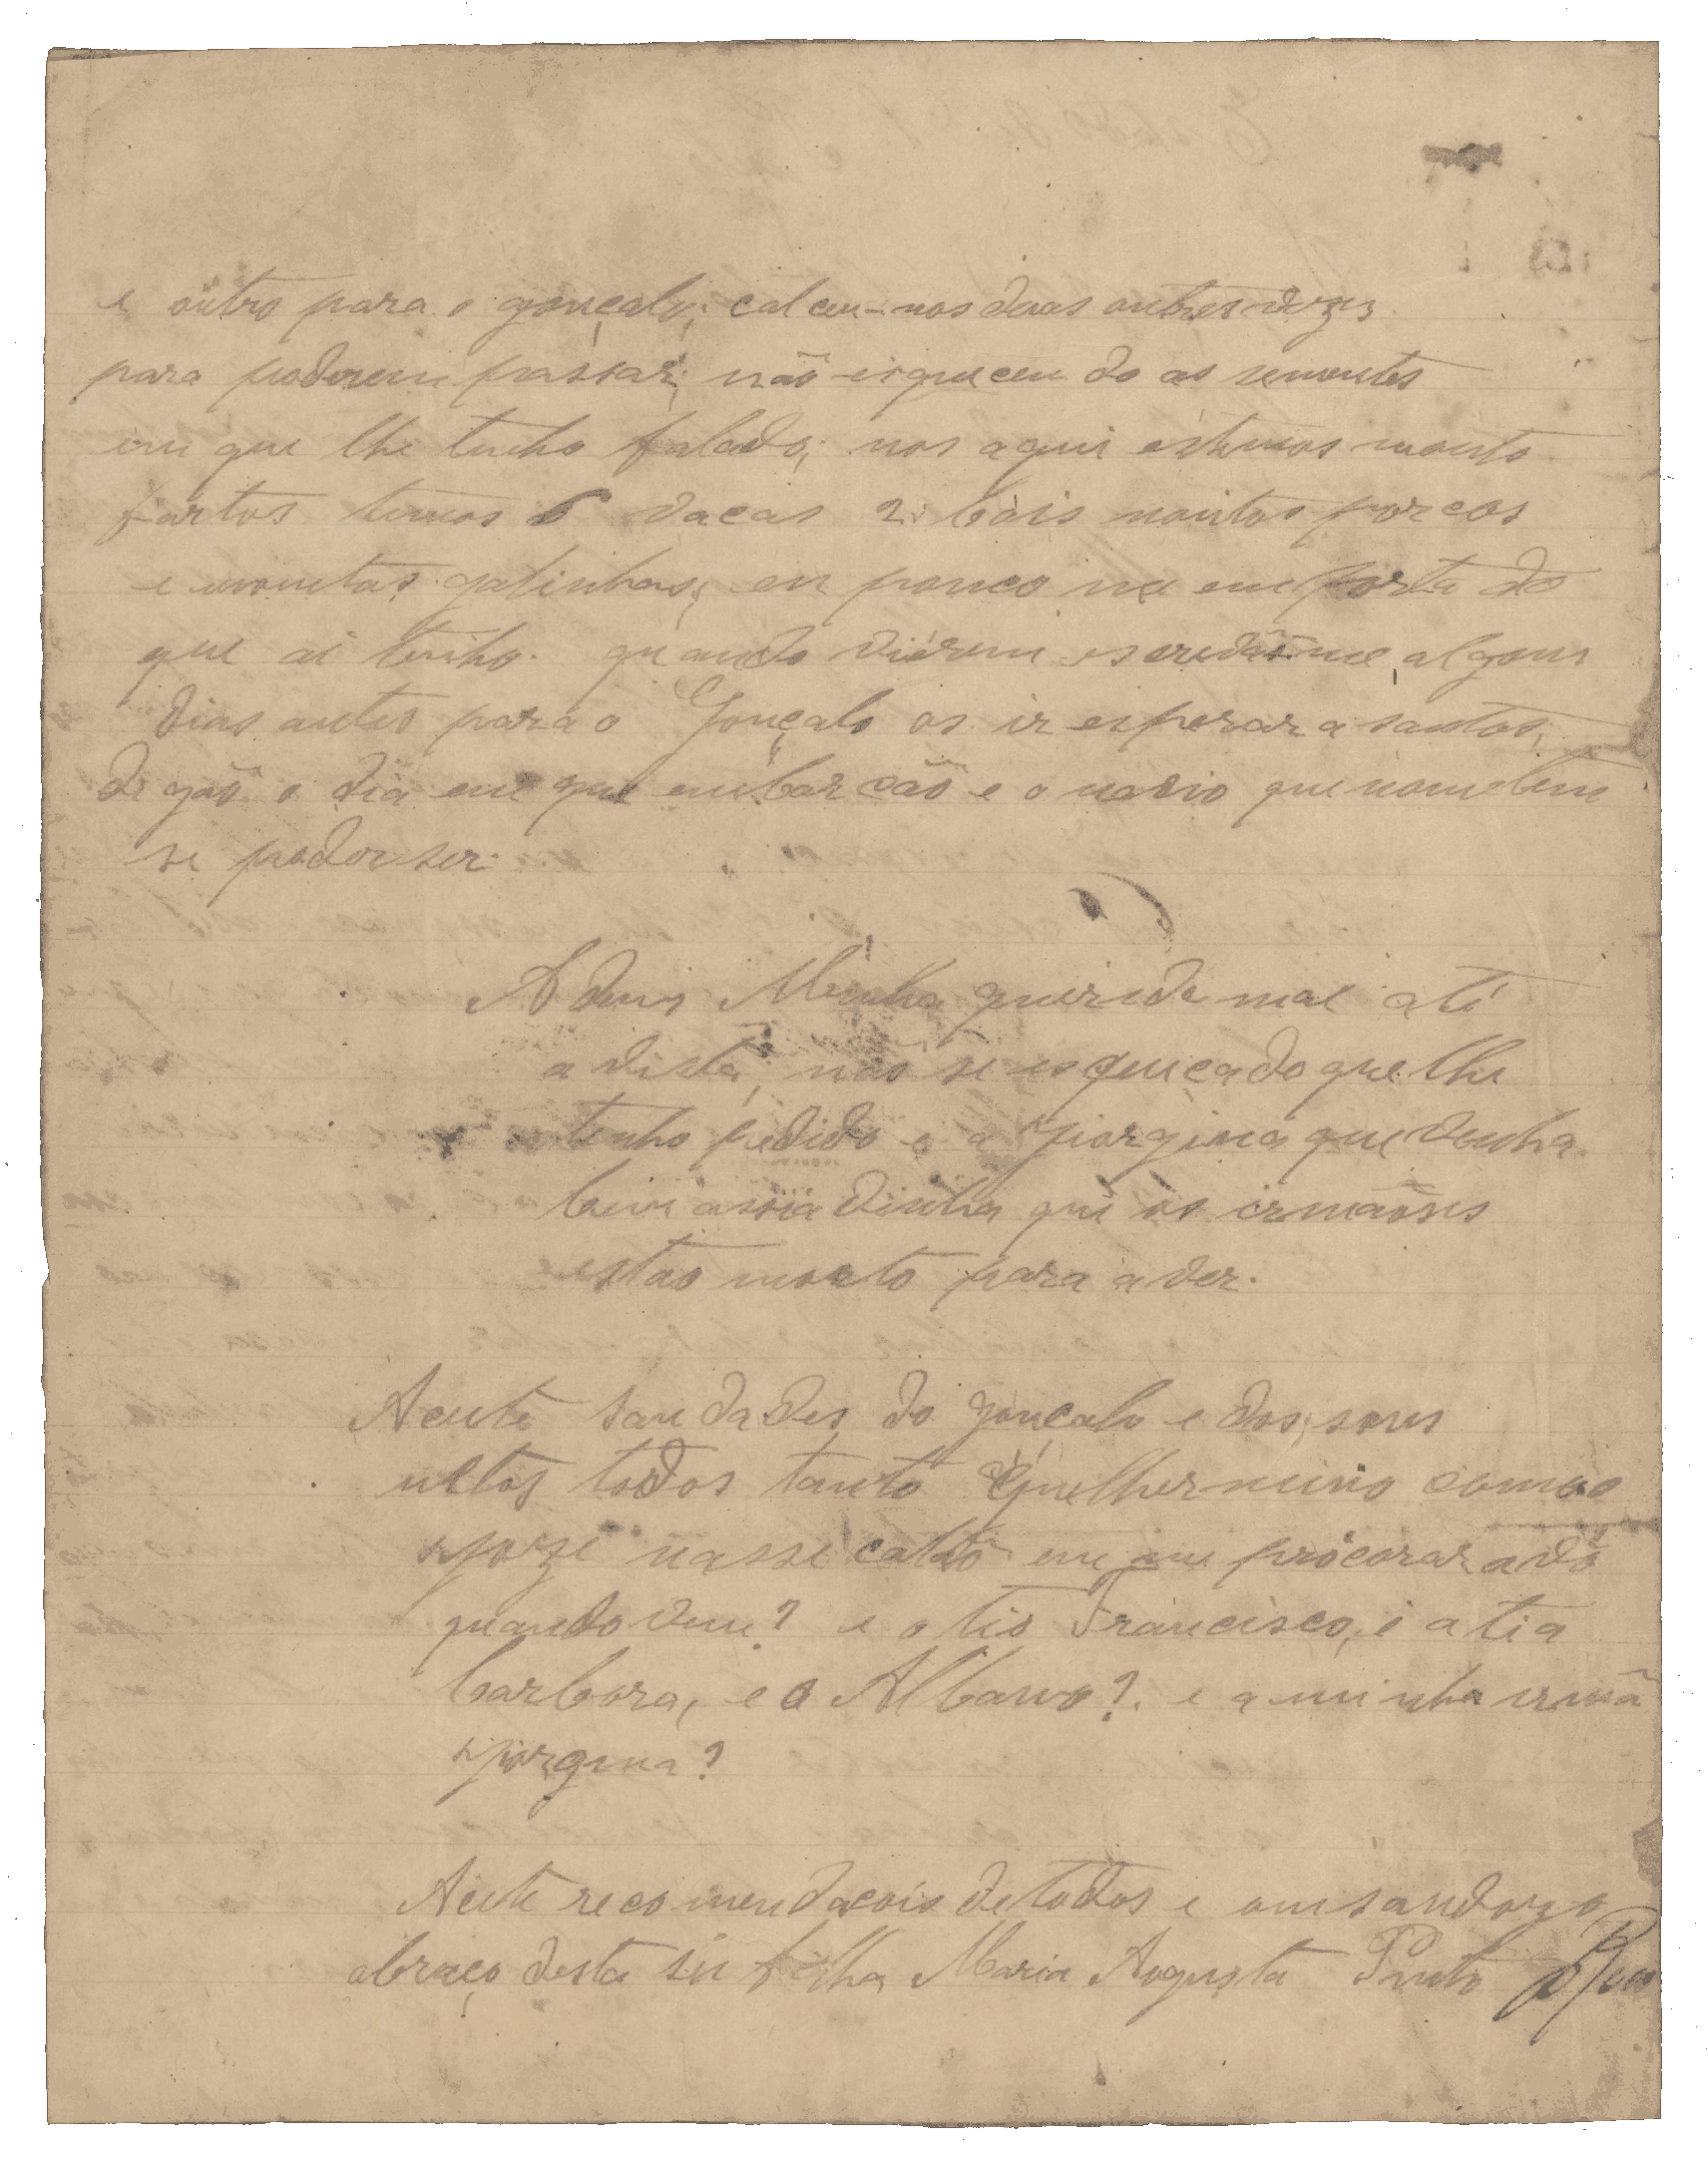 e outro para o gonçalo; calceu-nos duas outres vezes
para poderem passar; não esqueceu do as sementes
em que lhe tenho falado; nos aqui estemos monto
fartos temos 6 vacas 2 bois montos porcos
e monntas galinhas; en pouco me emporta do
que ai tenho. quando vierem escrevãome algons
dias antes para o Gonçalo os ir esperar a santos;
digão o dia em que embarcão e o navio que nome tem
se poder ser.
Adeus Minha querida mai até
a vista, não se esqueça do que lhe
tenho pedido e a Jiorgina que venha
bem assiadinha que os irmãoses
estão monto para a ver.
Aceite saudades do gonçalo e dos seus
netos todos tanto Guelhermino como o
Joze nasse cabo em me procorar a vó
quando vem? e o tio Francisco, e a tia
barbora, e o Albano? e a minha irmã
Jiorgina?
Aceite recomendacois de todos e om saudozo
abraço desta su filha Maria Augusta Pinto